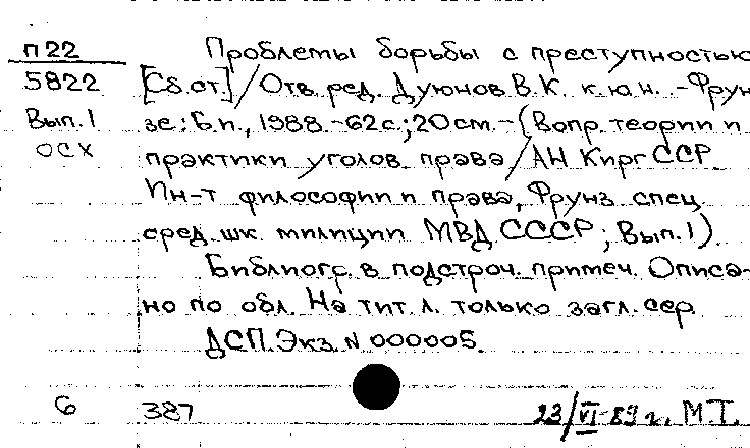 П22 Проблемы борьбы с преступностью
5822 [Сб. ст.] / Отв. ред. Дуюнов В.К. к.ю.н. - Фрун
Вып. 1 зе: Б.и., 1988. - 62с.; 20см. - (Вопр. теории и
ОСХ практики уголов. права / АН Кирг ССР.
Ин-т философии и права, Фрунз. спец.
сред. шк. милиции МВД СССР; Вып. 1)
Библиогр. в подстроч. примеч. Описа-
но по обл. На тит. л. только загл. сер.
ДСП. Экз. N 000005.
6 387 23/VI-89 г. М.Т.